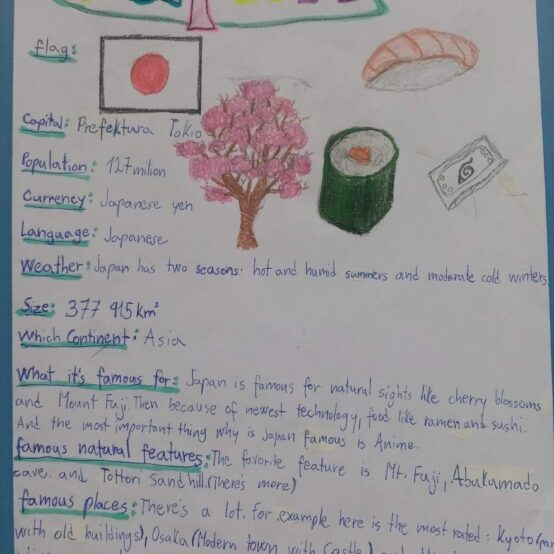 flag:
Capital: Prefektura Tokio
Population: 127 milion
Currency: Japanese yen
Language: Japanese
Weather: Japan has two seasons: hot and humid summers and moderate cold winters.
Size: 377 915 km²
Which Continent: Asia
What it's famous for: Japan is famous for natural sights like cherry blossoms
and Mount Fuji. Then because of newest technology, food like ramen and sushi.
And the most important thing why is Japan famous is Anime.
famous natural features: The favorite feature is Mt. Fuji, Abukumado
cave. and Tottori Sand hill. (There's more)
famous places: There's a lot. for example here is the most rated: Kyoto
with old buildings), Osaka (Modern town with Castle)